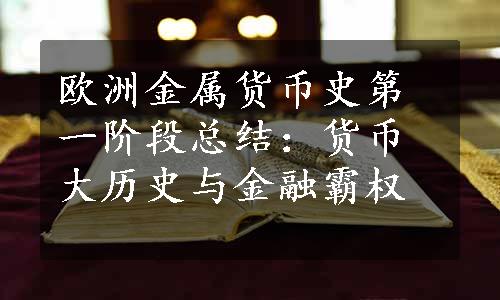 欧洲金属货币史第
一阶段总结：货币
大历史与金融霸权